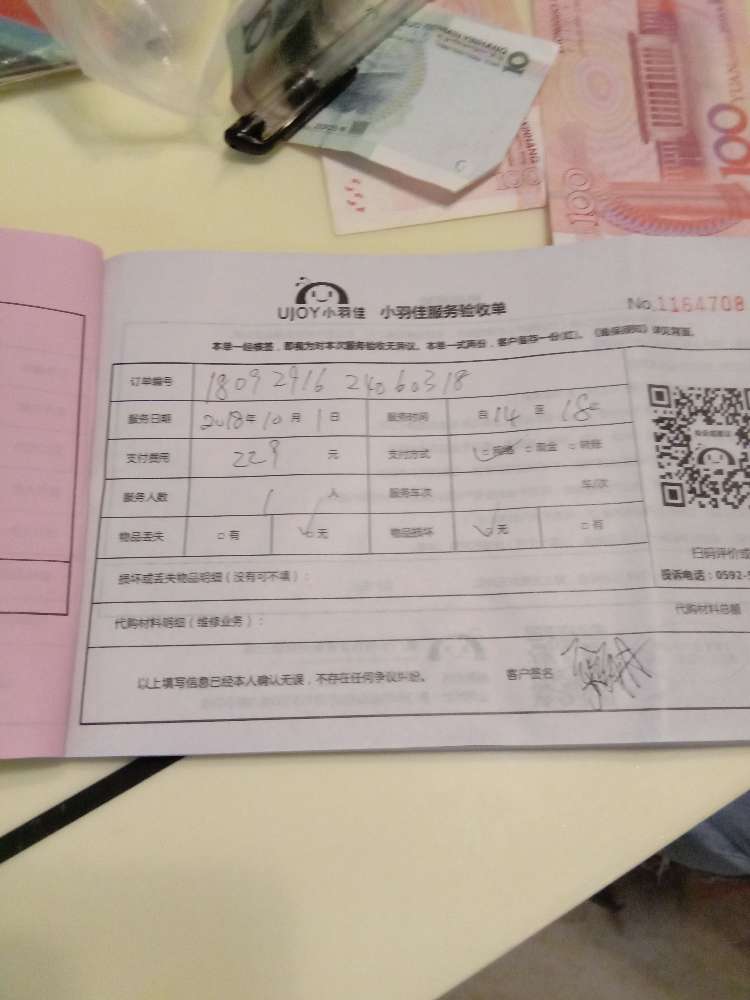 100
100
100
UJOY小羽佳 小羽佳服务验收单 No.1164708
本单一经核签，即视为对本次服务验收无异议。本单一式两份，客户留存一份(红)。《维保须知》详见背面。
订单编号 18092916 24060318
服务日期 2018年10月1日 服务时间 自14至18
支付费用 229 元 支付方式 □网络 □现金 □转账
服务人数 1 人 服务车次 车/次
物品丢失 □有 □无 物品损坏 □无 □有
扫码评价或
投诉电话：0592-
损坏或丢失物品明细（没有可不填）：
代购材料明细（维修业务）： 代购材料总额
以上填写信息已经本人确认无误，不存在任何争议纠纷。 客户签名